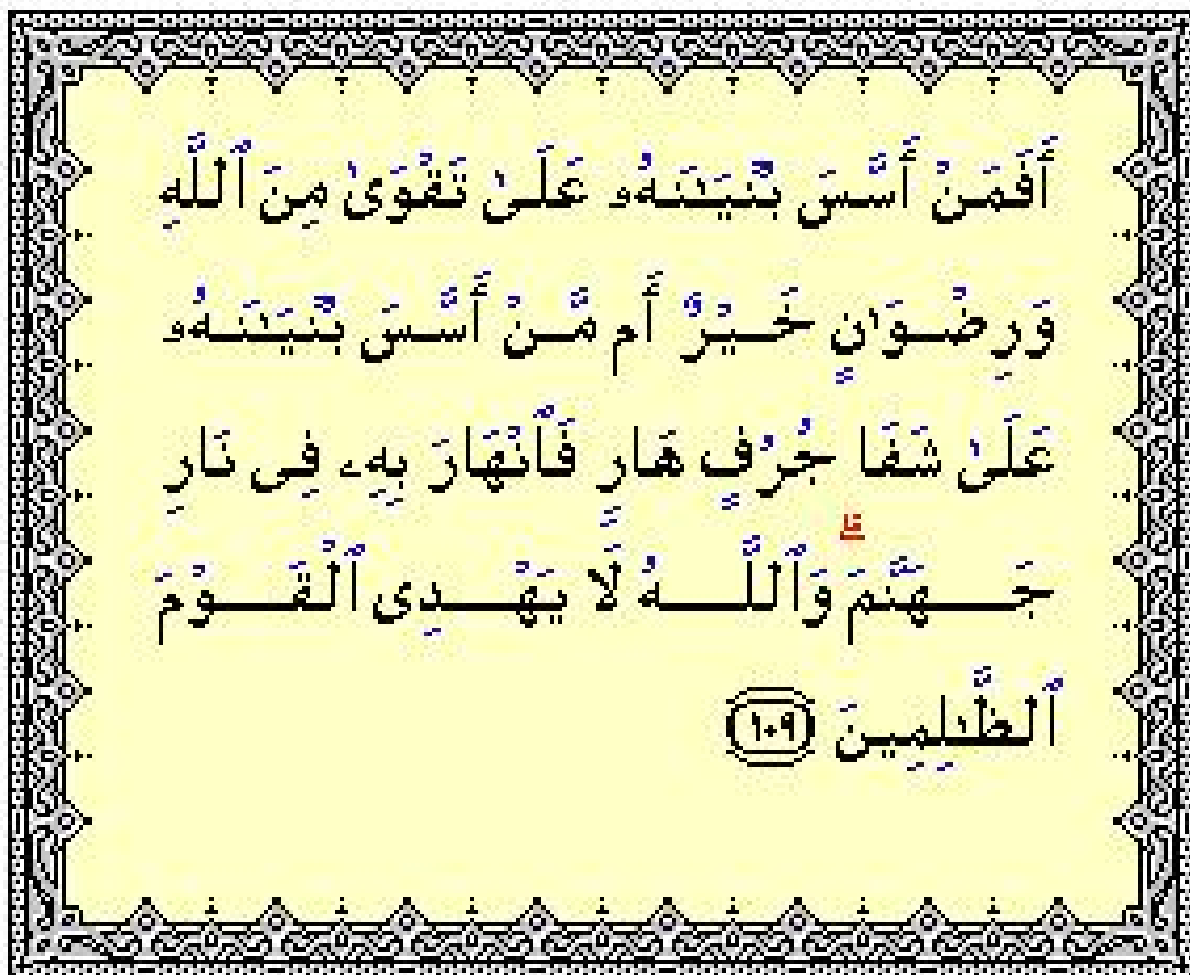 أَفَمَنْ أَسَّسَ بُنْيَـٰنَهُۥ عَلَىٰ تَقْوَىٰ مِنَ ٱللَّهِ
وَرِضْوَٰنٍ خَيْرٌ أَم مَّنْ أَسَّسَ بُنْيَـٰنَهُۥ
عَلَىٰ شَفَا جُرُفٍ هَارٍ فَٱنْهَارَ بِهِۦ فِى نَارِ
جَهَنَّمَ ۗ وَٱللَّهُ لَا يَهْدِى ٱلْقَوْمَ
ٱلظَّـٰلِمِينَ ١٠٩